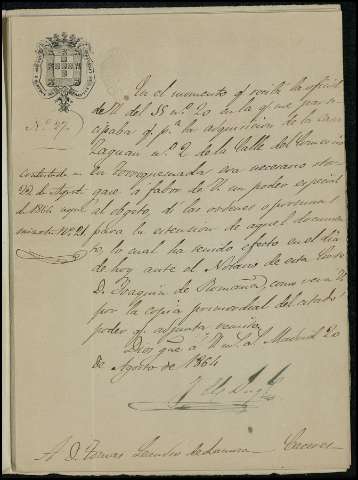 Nº 27.
En el momento q. recibí la oficial
de V. del 15 nº 20 en la q. me parti-
cipaba q. pª la adquisicion de la casa
Zaguan nº 2 de la Calle del Comercio
en Torrequemada era necesario otor-
gase a favor de V. un poder especial
al objeto, dí las ordenes oportunas
para la estension de aquel documen-
to, lo cual ha tenido efecto en el dia
de hoy ante el Notario de esta Corte
D. Joaquin de Romaña, como vera V.
por la copia primordial del citado
poder q. adjunta remito.
Dios gue. a V. m. a. Madrid 20
de Agosto de 1864
Contestada en
22 de Agosto
de 1864 segun
minuta nº 21
S. D. Tomas Leandro de Lamora
Caceres